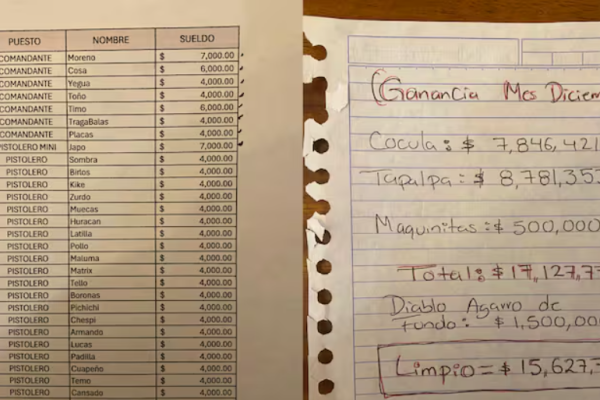 PUESTO NOMBRE SUELDO
COMANDANTE Moreno $ 7,000.00
COMANDANTE Cosa $ 6,000.00
COMANDANTE Yegua $ 4,000.00
COMANDANTE Toño $ 4,000.00
COMANDANTE Timo $ 6,000.00
COMANDANTE TragaBalas $ 4,000.00
COMANDANTE Placas $ 4,000.00
PISTOLERO MINI Japo $ 7,000.00
PISTOLERO Sombra $ 4,000.00
PISTOLERO Birlos $ 4,000.00
PISTOLERO Kike $ 4,000.00
PISTOLERO Zurdo $ 4,000.00
PISTOLERO Muecas $ 4,000.00
PISTOLERO Huracan $ 4,000.00
PISTOLERO Latilla $ 4,000.00
PISTOLERO Pollo $ 4,000.00
PISTOLERO Maluma $ 4,000.00
PISTOLERO Matrix $ 4,000.00
PISTOLERO Tello $ 4,000.00
PISTOLERO Boronas $ 4,000.00
PISTOLERO Pichichi $ 4,000.00
PISTOLERO Chespi $ 4,000.00
PISTOLERO Armando $ 4,000.00
PISTOLERO Lucas $ 4,000.00
PISTOLERO Padilla $ 4,000.00
PISTOLERO Cuapeño $ 4,000.00
PISTOLERO Temo $ 4,000.00
PISTOLERO Cansado $ 4,000.00
(Ganancia Mes Diciem
Cocula: $ 7,846,421
Tapalpa: $ 8,781,353
Maquinitas: $ 500,000
Total: $ 17,127,77
Diablo Agarro de
fundo: $ 1,500,00
Limpio = $ 15,627,7